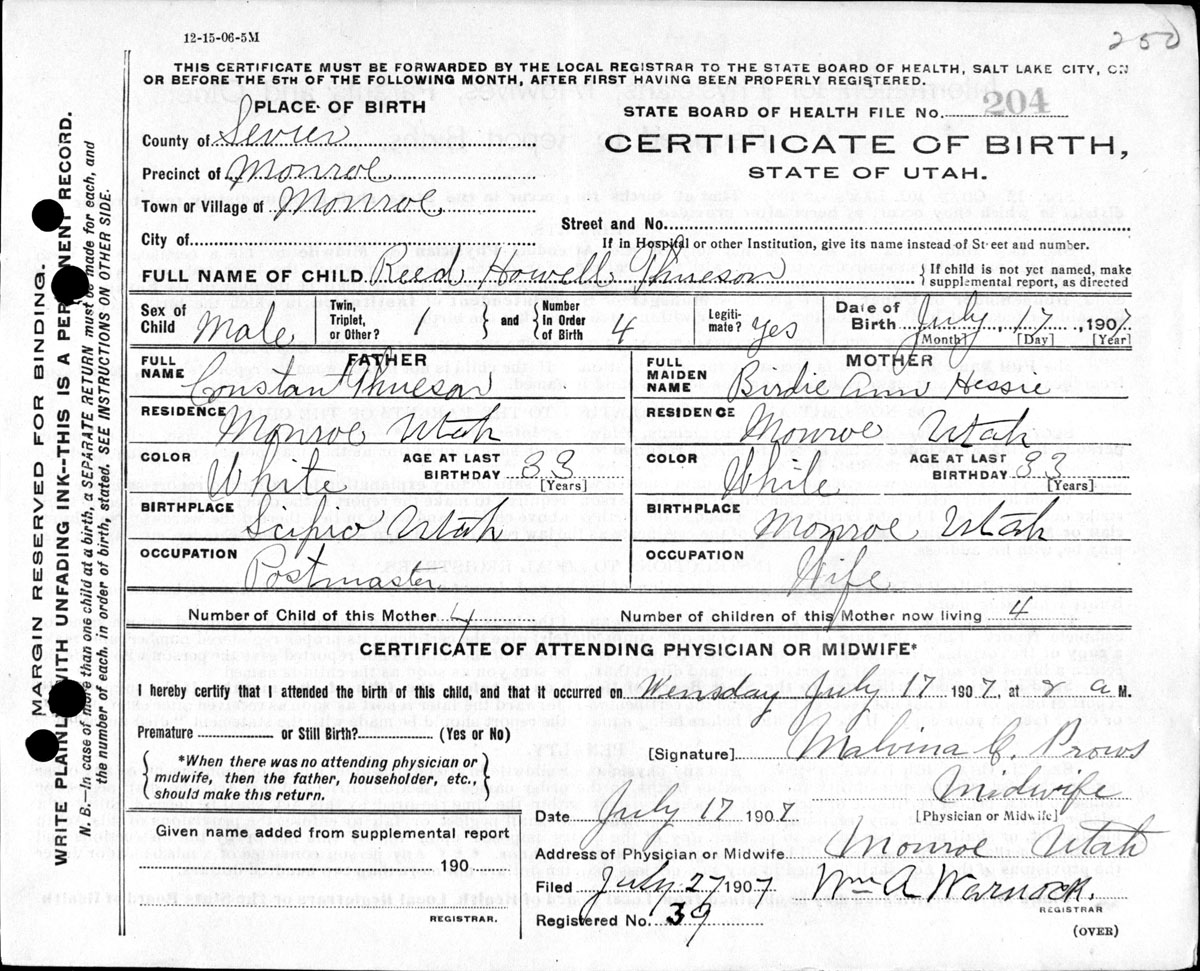 12-15-06-5M
250
THIS CERTIFICATE MUST BE FORWARDED BY THE LOCAL REGISTRAR TO THE STATE BOARD OF HEALTH, SALT LAKE CITY, ON
OR BEFORE THE 5TH OF THE FOLLOWING MONTH, AFTER FIRST HAVING BEEN PROPERLY REGISTERED.
PLACE OF BIRTH
STATE BOARD OF HEALTH FILE No. 204
County of Sevier
CERTIFICATE OF BIRTH,
Precinct of Monroe
STATE OF UTAH.
Town or Village of Monroe
Street and No.
City of
If in Hospital or other Institution, give its name instead of Street and number.
FULL NAME OF CHILD Reed Howell Thueson
If child is not yet named, make
supplemental report, as directed
Sex of Child Male
Twin, Triplet, or Other? 1 and Number In Order of Birth 4
Legiti-mate? yes
Date of Birth July 17, 1907
[Month] [Day] [Year]
FATHER
FULL NAME Constan Thueson
MOTHER
FULL MAIDEN NAME Birdie Ann Hessie
RESIDENCE Monroe Utah
RESIDENCE Monroe Utah
COLOR White AGE AT LAST BIRTHDAY 33 [Years]
COLOR White AGE AT LAST BIRTHDAY 33 [Years]
BIRTHPLACE Scipio Utah
BIRTHPLACE Monroe Utah
OCCUPATION Postmaster
OCCUPATION Wife
Number of Child of this Mother 4 Number of children of this Mother now living 4
CERTIFICATE OF ATTENDING PHYSICIAN OR MIDWIFE*
I hereby certify that I attended the birth of this child, and that it occurred on Wensday July 17 1907, at 2 a M.
Premature or Still Birth? (Yes or No)
[Signature] Malvina C. Prows
*When there was no attending physician or
midwife, then the father, householder, etc.,
should make this return.
Midwife
Date July 17 1907 [Physician or Midwife]
Given name added from supplemental report
190
REGISTRAR.
Address of Physician or Midwife Monroe Utah
Filed 27 1907 Wm A Warnock.
REGISTRAR
Registered No. 39
(OVER)
MARGIN RESERVED FOR BINDING.
WRITE PLAINLY WITH UNFADING INK--THIS IS A PERMANENT RECORD.
N. B.--In case of more than one child at a birth, a SEPARATE RETURN must be made for each, and
the number of each, in order of birth, stated. SEE INSTRUCTIONS ON OTHER SIDE.